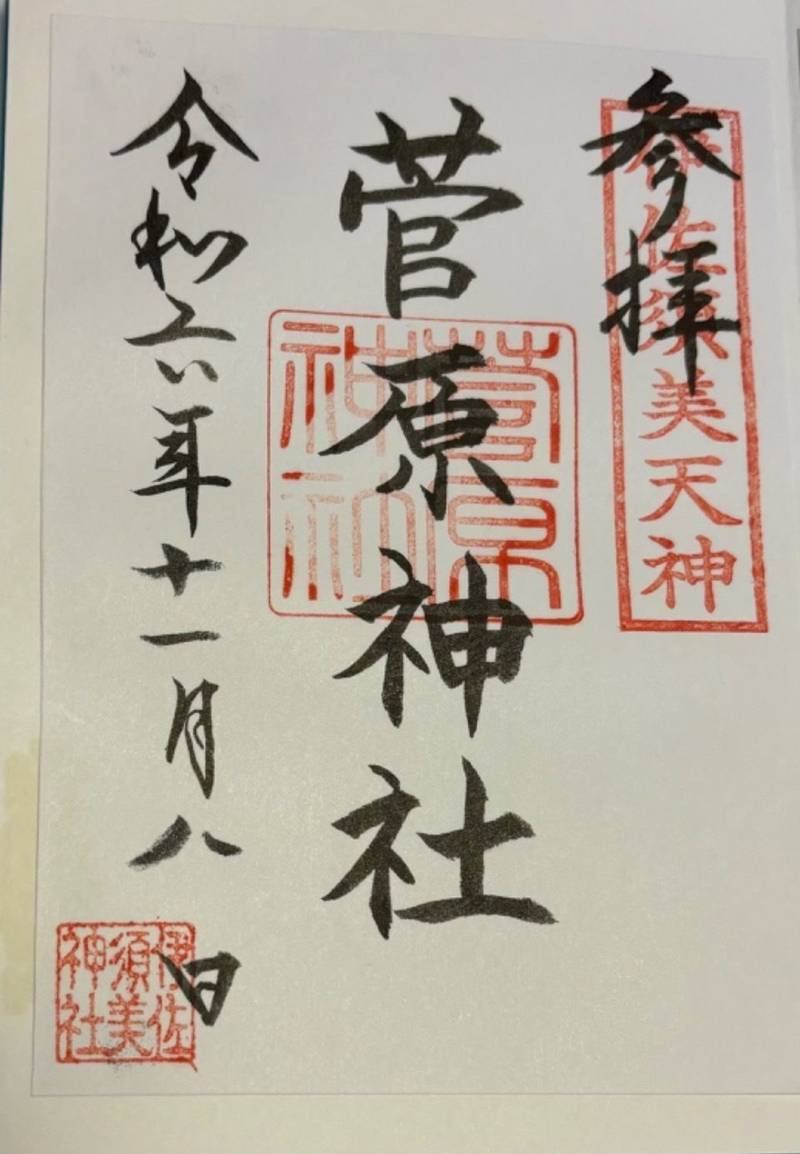 参拝
伊佐須美天神
菅原神社
菅原
神社
令和六年十一月八日
伊佐
須美
神社